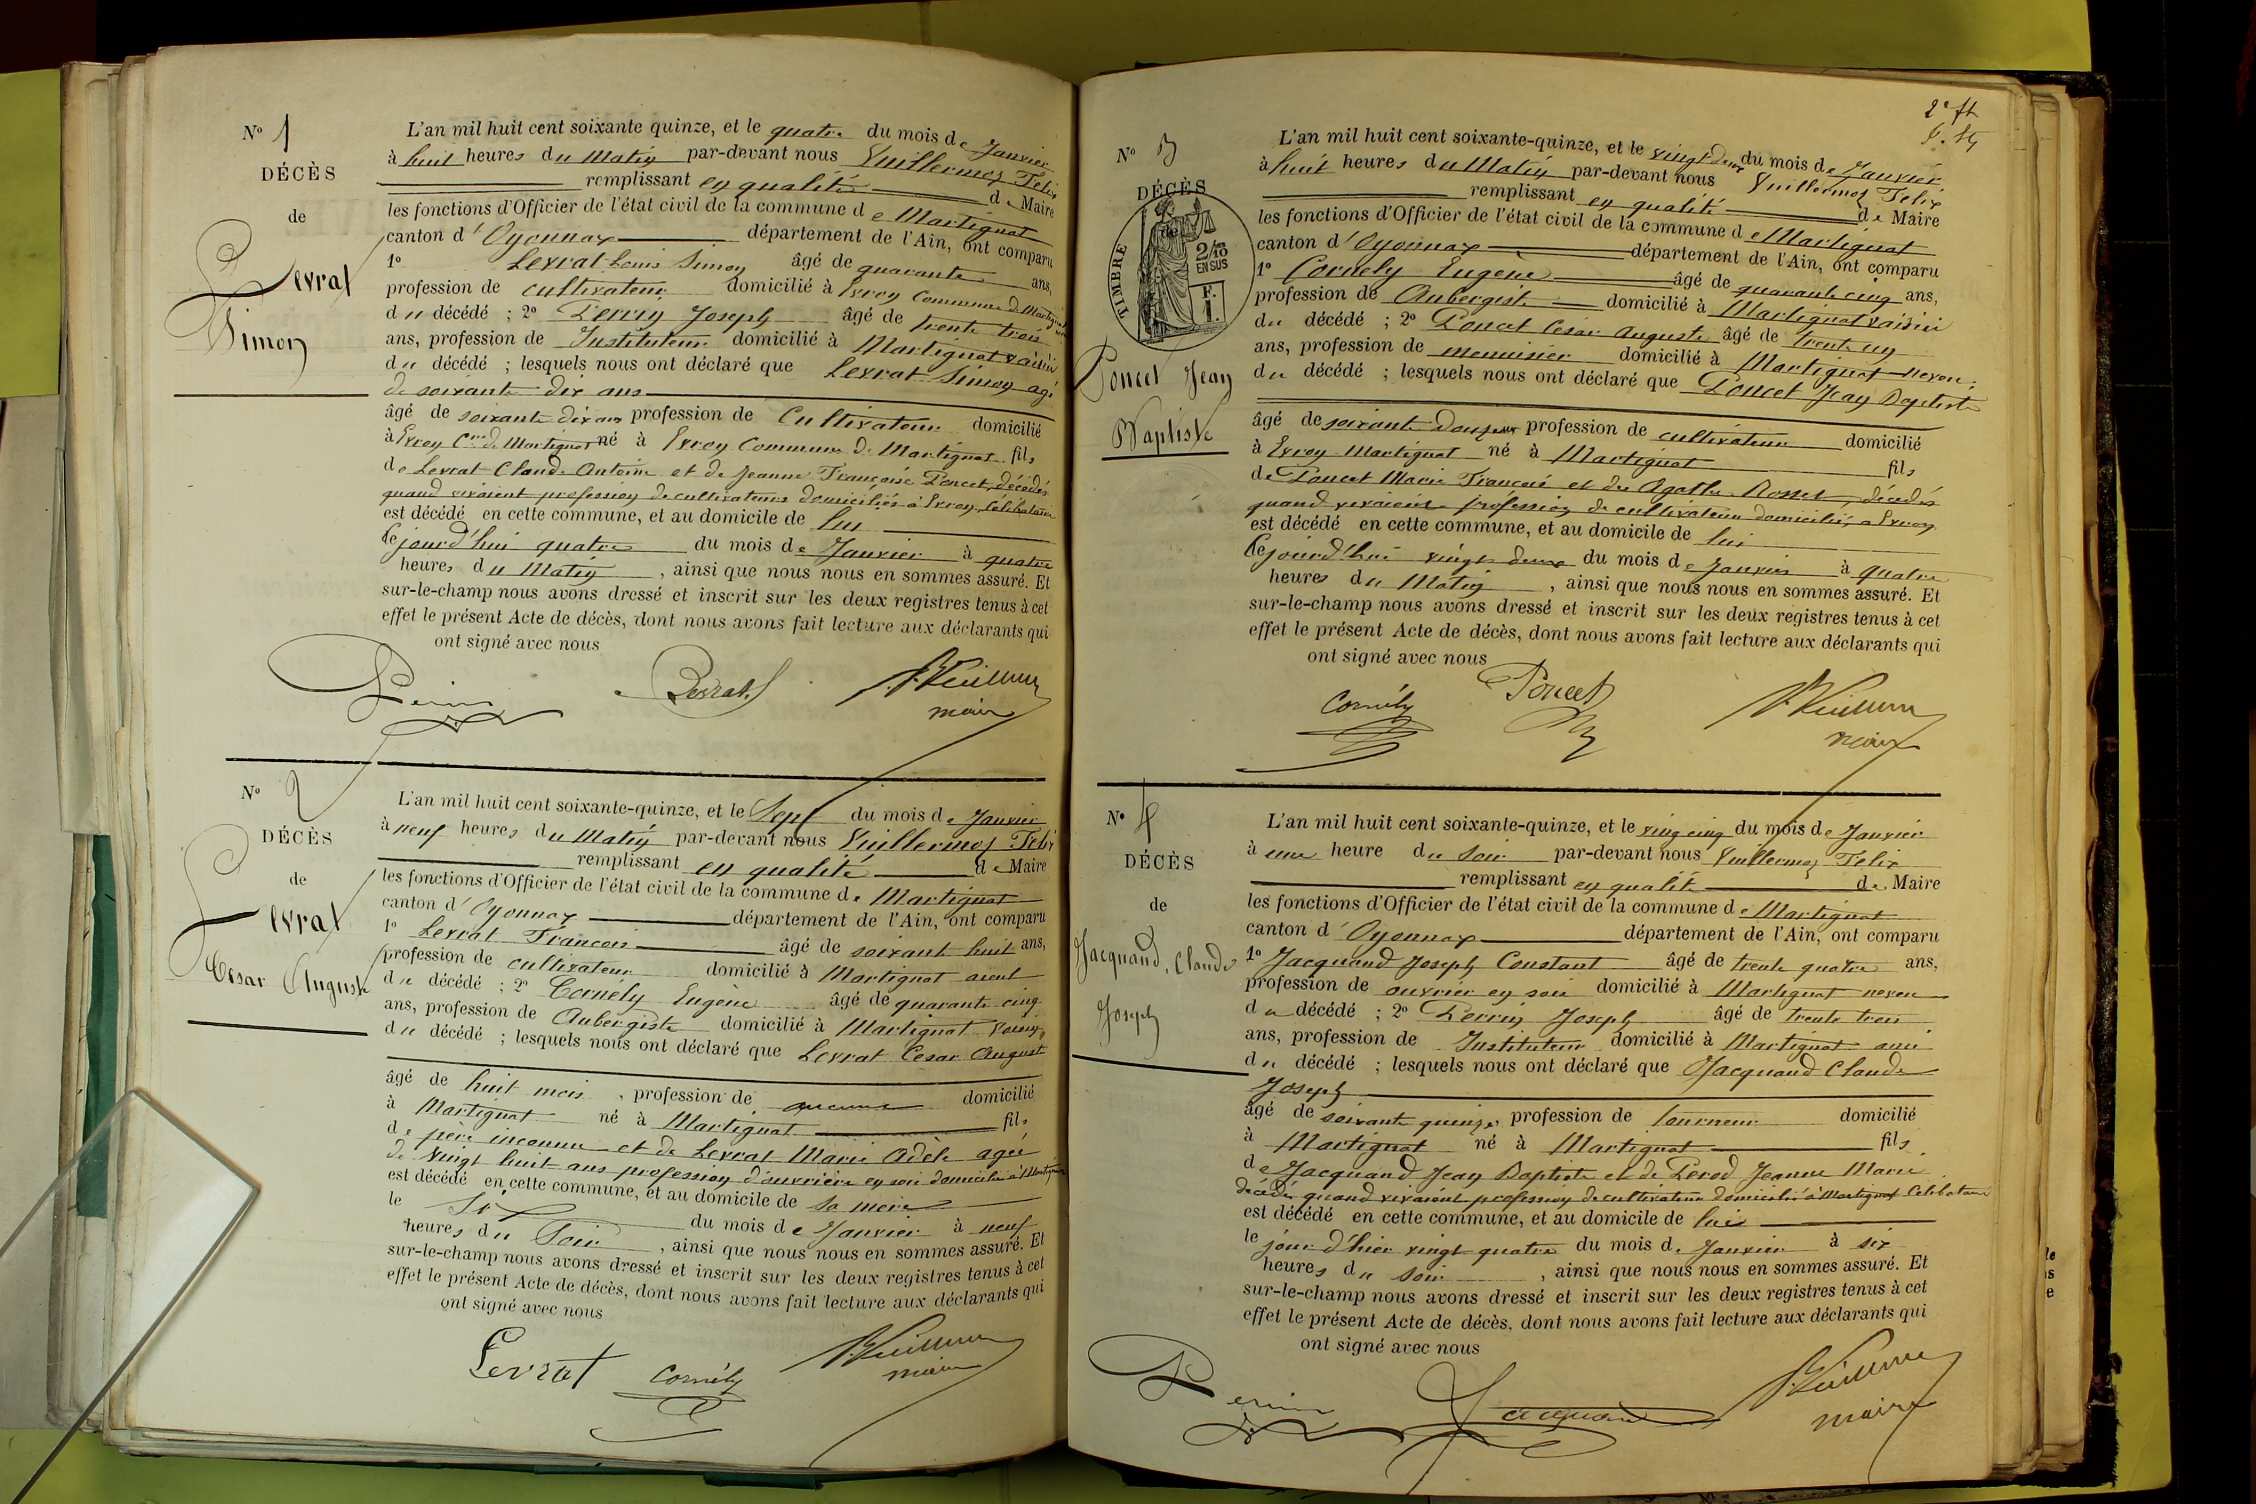 N° 1
DÉCÈS
de
Levrat
Simon
L'an mil huit cent soixante quinze, et le quatre du mois de Janvier
à huit heures du Matin par-devant nous Vuillermoz Felix
remplissant en qualité de Maire
les fonctions d'Officier de l'état civil de la commune de Martignat
canton d'Oyonnax département de l'Ain, ont comparu
1° Levrat Louis Simon âgé de quarante ans,
profession de cultivateur domicilié à Evron Commune de Martignat
du décédé ; 2° Perrin Joseph âgé de trente trois
ans, profession de Instituteur domicilié à Martignat voisin
du décédé ; lesquels nous ont déclaré que Levrat Simon agé
de soixante dix ans
âgé de soixante dix ans profession de Cultivateur domicilié
à Evron Cne de Martignat né à Evron Commune de Martignat fils
de Levrat Claude Antoine et de Jeanne Françoise Poncet, décédés
quand vivaient profession de cultivateurs domiciliés à Evron, Célibataire
est décédé en cette commune, et au domicile de lui
Cejourd'hui quatre du mois de Janvier à quatre
heures du Matin, ainsi que nous nous en sommes assuré. Et
sur-le-champ nous avons dressé et inscrit sur les deux registres tenus à cet
effet le présent Acte de décès, dont nous avons fait lecture aux déclarants qui
ont signé avec nous
Perrin Levrat F. Vuillermoz
maire
N° 2
DÉCÈS
de
Levrat
César Auguste
L'an mil huit cent soixante-quinze, et le Sept du mois de Janvier
à neuf heures du Matin par-devant nous Vuillermoz Felix
remplissant en qualité de Maire
les fonctions d'Officier de l'état civil de la commune de Martignat
canton d'Oyonnax département de l'Ain, ont comparu
1° Levrat François âgé de soixant huit ans,
profession de cultivateur domicilié à Martignat aieul
du décédé ; 2° Cornély Eugène âgé de quarante cinq
ans, profession de Aubergiste domicilié à Martignat voisin
du décédé ; lesquels nous ont déclaré que Levrat Cesar August
âgé de huit mois, profession de aucune domicilié
à Martignat né à Martignat fils
de père inconnu et de Levrat Marie Adèle agée
de vingt huit ans profession d'ouvrière en soie domiciliée à Martignat
est décédé en cette commune, et au domicile de sa mère
le Six du mois de Janvier à neuf
heures du Soir, ainsi que nous nous en sommes assuré. Et
sur-le-champ nous avons dressé et inscrit sur les deux registres tenus à cet
effet le présent Acte de décès, dont nous avons fait lecture aux déclarants qui
ont signé avec nous
Levrat Cornély F. Vuillermoz
maire
2e ft
N° 3
DÉCÈS
de
TIMBRE
2/10
EN SUS
F.
1.
Poncet Jean
Baptiste
L'an mil huit cent soixante-quinze, et le vingt deux du mois de Janvier
à huit heures du Matin par-devant nous Vuillermoz Felix
remplissant en qualité de Maire
les fonctions d'Officier de l'état civil de la commune de Martignat
canton d'Oyonnax département de l'Ain, ont comparu
1° Cornely Eugène âgé de quarante cinq ans,
profession de Aubergiste domicilié à Martignat voisin
du décédé ; 2° Poncet César Auguste âgé de trente un
ans, profession de menuisier domicilié à Martignat neveu
du décédé ; lesquels nous ont déclaré que Poncet Jean Baptiste
âgé de soixante douze profession de cultivateur domicilié
à Evron Martignat né à Martignat fils
de Poncet Marie François et de Agathe Rosset, décédés
quand vivaient profession de cultivateur domiciliés à Evron
est décédé en cette commune, et au domicile de lui
Cejourd'hui vingt deux du mois de Janvier à quatre
heures du Matin, ainsi que nous nous en sommes assuré. Et
sur-le-champ nous avons dressé et inscrit sur les deux registres tenus à cet
effet le présent Acte de décès, dont nous avons fait lecture aux déclarants qui
ont signé avec nous
Cornély Poncet F. Vuillermoz
maire
N° 4
DÉCÈS
de
Jacquand, Claude
Joseph
L'an mil huit cent soixante-quinze, et le ving cinq du mois de Janvier
à une heure du Soir par-devant nous Vuillermoz Felix
remplissant en qualité de Maire
les fonctions d'Officier de l'état civil de la commune de Martignat
canton d'Oyonnax département de l'Ain, ont comparu
1° Jacquand Joseph Constant âgé de trente quatre ans,
profession de ouvrier en soie domicilié à Martignat neveu
du décédé ; 2° Perrin Joseph âgé de trente trois
ans, profession de Instituteur domicilié à Martignat ami
du décédé ; lesquels nous ont déclaré que Jacquand Claude
Joseph
âgé de soixante quinze, profession de tourneur domicilié
à Martignat né à Martignat fils
de Jacquand Jean Baptiste et de Perod Jeanne Marie
décédés quand vivaient profession de cultivateur domiciliés à Martignat Célibataire
est décédé en cette commune, et au domicile de lui
le jour d'hier vingt quatre du mois de Janvier à six
heures du soir, ainsi que nous nous en sommes assuré. Et
sur-le-champ nous avons dressé et inscrit sur les deux registres tenus à cet
effet le présent Acte de décès, dont nous avons fait lecture aux déclarants qui
ont signé avec nous
Perrin Jacquand F. Vuillermoz
maire